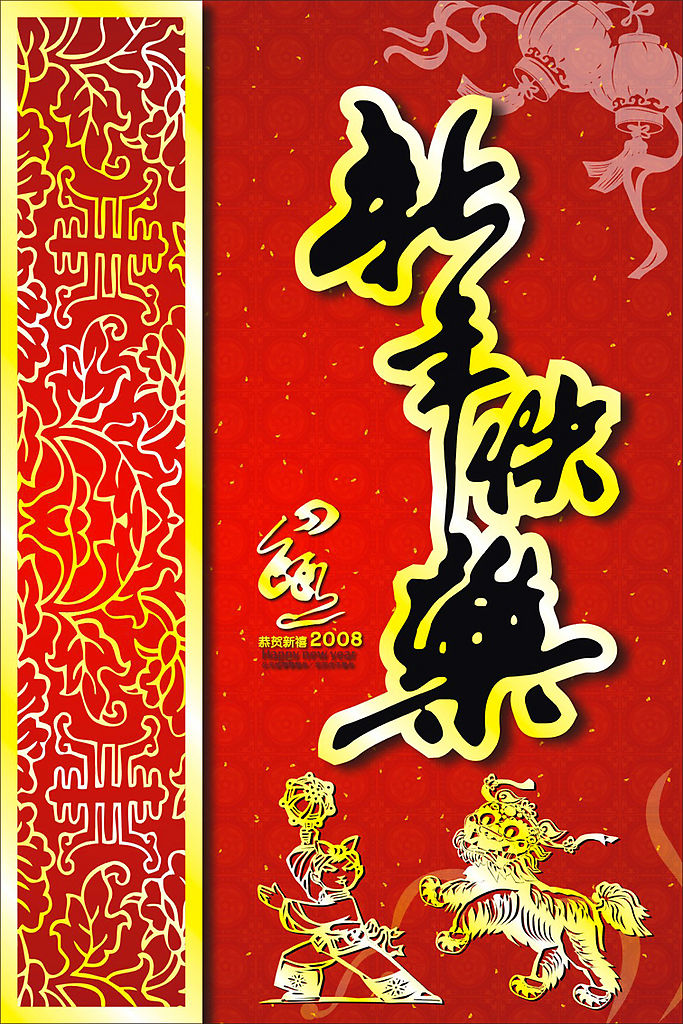 新年快樂
恭贺新禧 2008
Happy new year